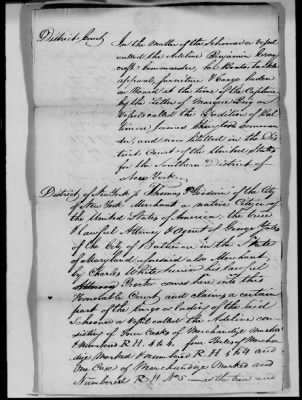 District Court
In the Matter of the Schooner or vessel
called the Adeline Benjamin Cray
croft Commander, her Boats, tackle
apparel, furniture & Cargo laden
on Board at the time of the Capture
by the Letter of Marque Brig or
Vessel called the Expedition of Bal
timore James Comman
der, and now libelled in the Dis
trict Court of the United States
for the Southern District of
New York.
District of New York Thomas Goodwin of the City
of New York Merchant a native Citizen of
the United States of America, the true
& lawful Attorney & Agent of George
of the City of Baltimore in the State
of Maryland aforesaid also Merchant,
by Charles White his lawful
Proctor comes here into this
Honorable Court, and claims a certain
part of the Cargo or lading of the said
Schooner or vessel called the Adeline con
sisting of Four Casks of Merchandize Marked
& Numbered R.H. 1 & 6. four Bales of Merchan
dize Marked & numbered R.H 1 & 4 and
One Case of Merchandize Marked and
Numbered R.H. No 5 — as the true and